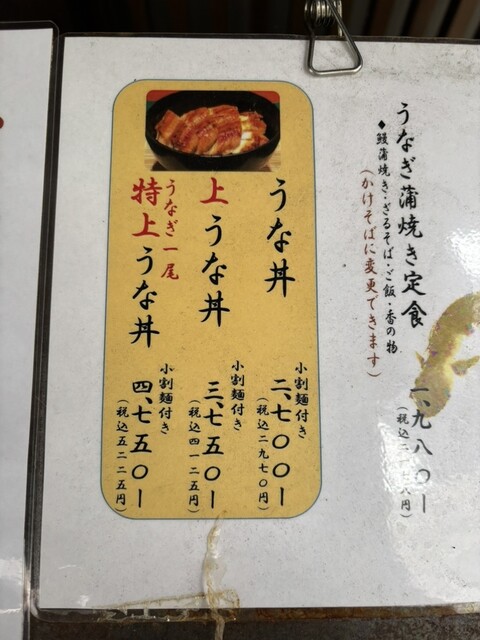 うなぎ蒲焼き定食
◆鰻蒲焼き・ざるそば・ご飯・香の物
(かけそばに変更できます)
一、九八〇ー
うな丼
小割麺付き
二、七〇〇ー
(税込二九七〇円)
上うな丼
小割麺付き
三、七五〇ー
(税込四一二五円)
うなぎ一尾
特上うな丼
小割麺付き
四、七五〇ー
(税込五二二五円)